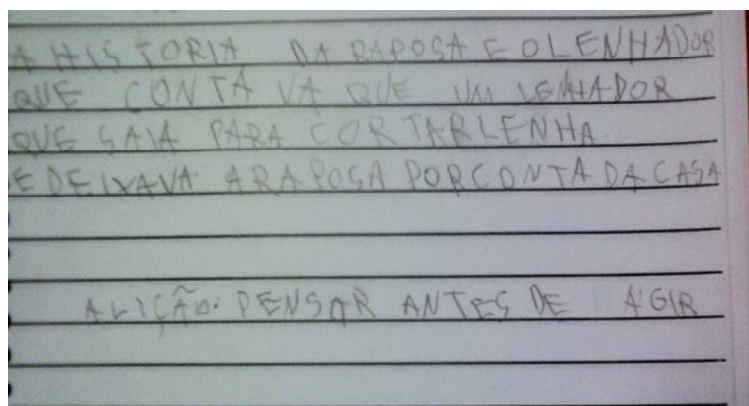 A HISTORIA DA RAPOSA E O LENHADOR
QUE CONTAVA QUE UM LENHADOR
QUE SAIA PARA CORTAR LENHA
E DEIXAVA A RAPOSA POR CONTA DA CASA
A LIÇÃO: PENSAR ANTES DE AGIR